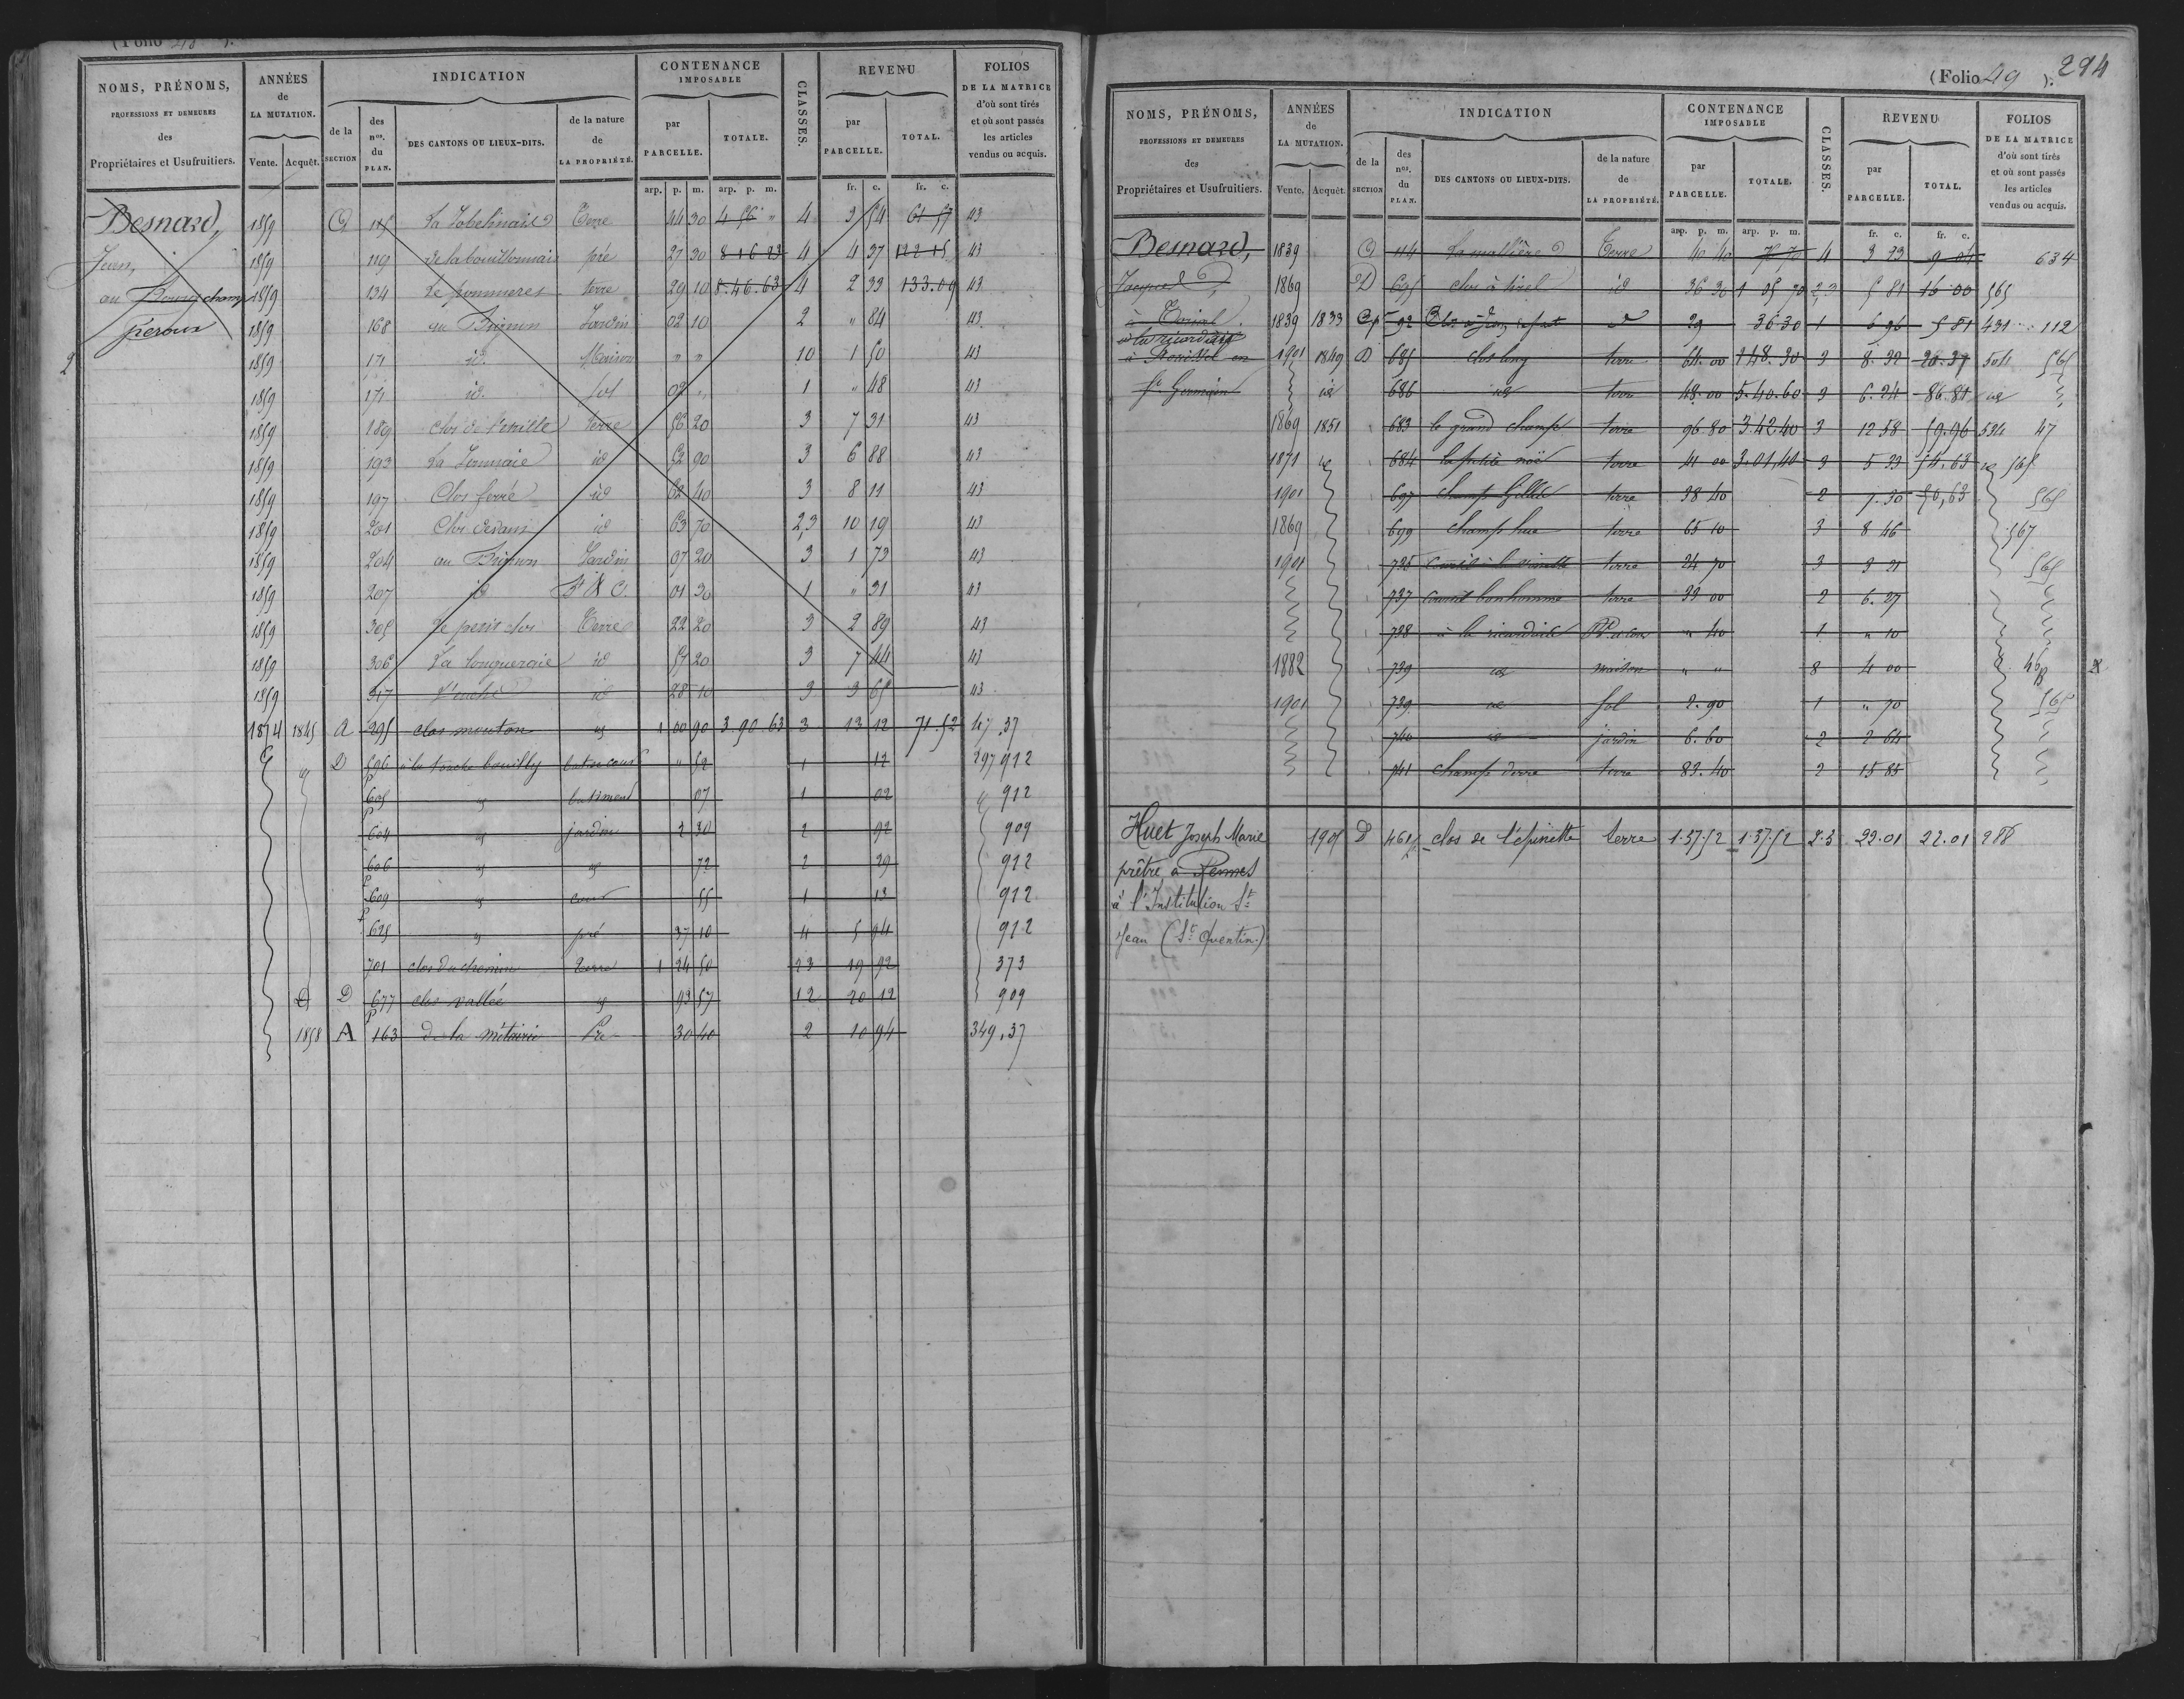 (Folio 48 ).
NOMS, PRÉNOMS, PROFESSIONS ET DEMEURES des Propriétaires et Usufruitiers. ANNÉES de LA MUTATION. Vente. Acquêt. INDICATION de la SECTION des nos. du PLAN. DES CANTONS OU LIEUX-DITS. de la nature de LA PROPRIÉTÉ. CONTENANCE IMPOSABLE par PARCELLE. TOTALE. CLASSES. REVENU par PARCELLE. TOTAL. FOLIOS DE LA MATRICE d'où sont tirés et où sont passés les articles vendus ou acquis.
arp. p. m. arp. p. m. fr. c. fr. c.
Besnard, 1859 A 115 La Jobelinaise Terre 44 30 4 56 " 4 3 54 61 57 43
Jean, 1859 119 de la bouillonnais pré 27 30 8 16 23 4 4 37 122 15 43
au Bourg champ 1859 134 Le pommeres terre 29 10 8.46.63 4 2 33 133.09 43
peroux 1859 168 au Brignon Jardin 02 10 2 " 84 43
2 1859 171 id. Maison " " 10 1 50 43
1859 171 id. sol 02 " 1 " 48 43
1859 189 Clos de terre 56 20 3 7 31 43
1859 193 La id 52 90 3 6 88 43
1859 197 Clos ferré id 62 40 3 8 11 43
1859 201 Clos devant id 63 70 2,3 10 19 43
1859 204 au Brignon Jardin 07 20 3 1 73 43
1859 207 id Bt & C. 01 30 1 " 31 43
1859 305 Le petit clos Terre 22 20 3 2 89 43
1859 306 La longueraie id 57 20 3 7 44 43
1859 317 L'ouche id 28 10 3 3 65 43
1874 1845 A 295 clos mouton id 1 00 90 3.90 63 3 13 12 71.52 47.37
D 596 p à la touche bouilly bat et cour " 52 1 12 297 912
605 p id batiment 07 1 02 912
604 id jardin 2 30 2 92 909
606 p id id 72 2 29 912
609 p id cour 55 1 13 912
625 id pré 37 10 4 5 94 912
701 clos du chemin terre 1 24 50 23 19 92 373
D 677 p clos vallée id 93 57 12 20 12 909
1858 A 163 de la métairie Pré 30 40 2 10 94 349.37
294
(Folio 49 ).
NOMS, PRÉNOMS, PROFESSIONS ET DEMEURES des Propriétaires et Usufruitiers. ANNÉES de LA MUTATION. Vente. Acquêt. INDICATION de la SECTION des nos. du PLAN. DES CANTONS OU LIEUX-DITS. de la nature de LA PROPRIÉTÉ. CONTENANCE IMPOSABLE par PARCELLE. TOTALE. CLASSES. REVENU par PARCELLE. TOTAL. FOLIOS DE LA MATRICE d'où sont tirés et où sont passés les articles vendus ou acquis.
arp. p. m. arp. p. m. fr. c. fr. c.
Besnard, 1839 A 114 La mollière Terre 40 40 76,70 4 3 23 9 04 634
Jacques, 1869 D 695 clos à tirel id 36 30 1 05 70 2,3 5 81 16 00 565
à 1839 1833 92 Clos id 29 36 30 1 6 96 5 81 431 112
à la ricardais 1901 1849 D 685 clos long terre 64.00 148.30 3 8.32 20.37 504 565
à en St Germain id 686 id terre 48.00 5.40.60 3 6.24 86.84 id
1869 1851 683 le grand champ terre 96.80 3.42.40 3 12 58 59.96 534 47
1871 id 684 la petite noë terre 41 00 3.01,40 3 5 33 54.63 id 565
1901 697 champ terre 38 40 2 7.30 50,63 565
1869 699 champ hue terre 65 10 3 8 46 567
1901 735 terre 24 70 3 3 21 565
737 bonhomme terre 33 00 2 6.27
738 à la ricardais Bt et cour " 40 1 " 10
1882 739 id maison " " 8 4 00
1901 739 id sol 2.90 1 " 70 565
740 id jardin 6.60 2 2 64
741 champ terre 83.40 2 15 85
Huet Joseph Marie 1905 D 461 p clos de l'épinette terre 1.37.52 1.37.52 2.3 22.01 22.01 288
prêtre à Rennes
à l'Institution St
Jean (St Quentin.)